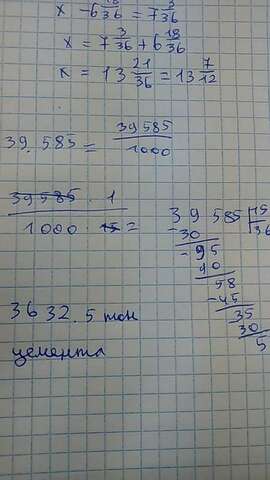 x - 6 18/36 = 7 3/36
x = 7 3/36 + 6 18/36
x = 13 21/36 = 13 7/12
39.585 = 39585/1000
39585 · 1
1000 · 15 =
39585 | 15
- 30 | 36
- 95
90
58
- 45
35
30
5
3632.5 тон
цемента